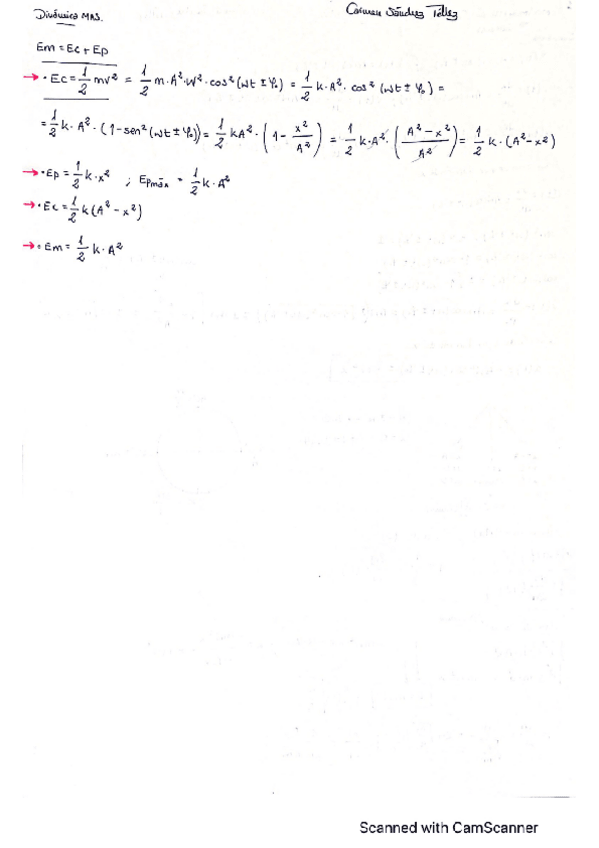 Dinámica MAS.
Carmen Sánchez Téllez
Em = Ec + Ep
→ · Ec = 1/2 mv² = 1/2 m·A²·W²·cos²(wt ± φ₀) = 1/2 k·A²· cos² (wt ± φ₀) =
= 1/2 k·A²·(1-sen²(wt ± φ₀)) = 1/2 kA²·(1 - x²/A²) = 1/2 k·A²·(A²-x²/A²) = 1/2 k·(A²-x²)
→ · Ep = 1/2 k·x² ; Epmáx = 1/2 k·A²
→ · Ec = 1/2 k(A²-x²)
→ · Em = 1/2 k·A²
Scanned with CamScanner